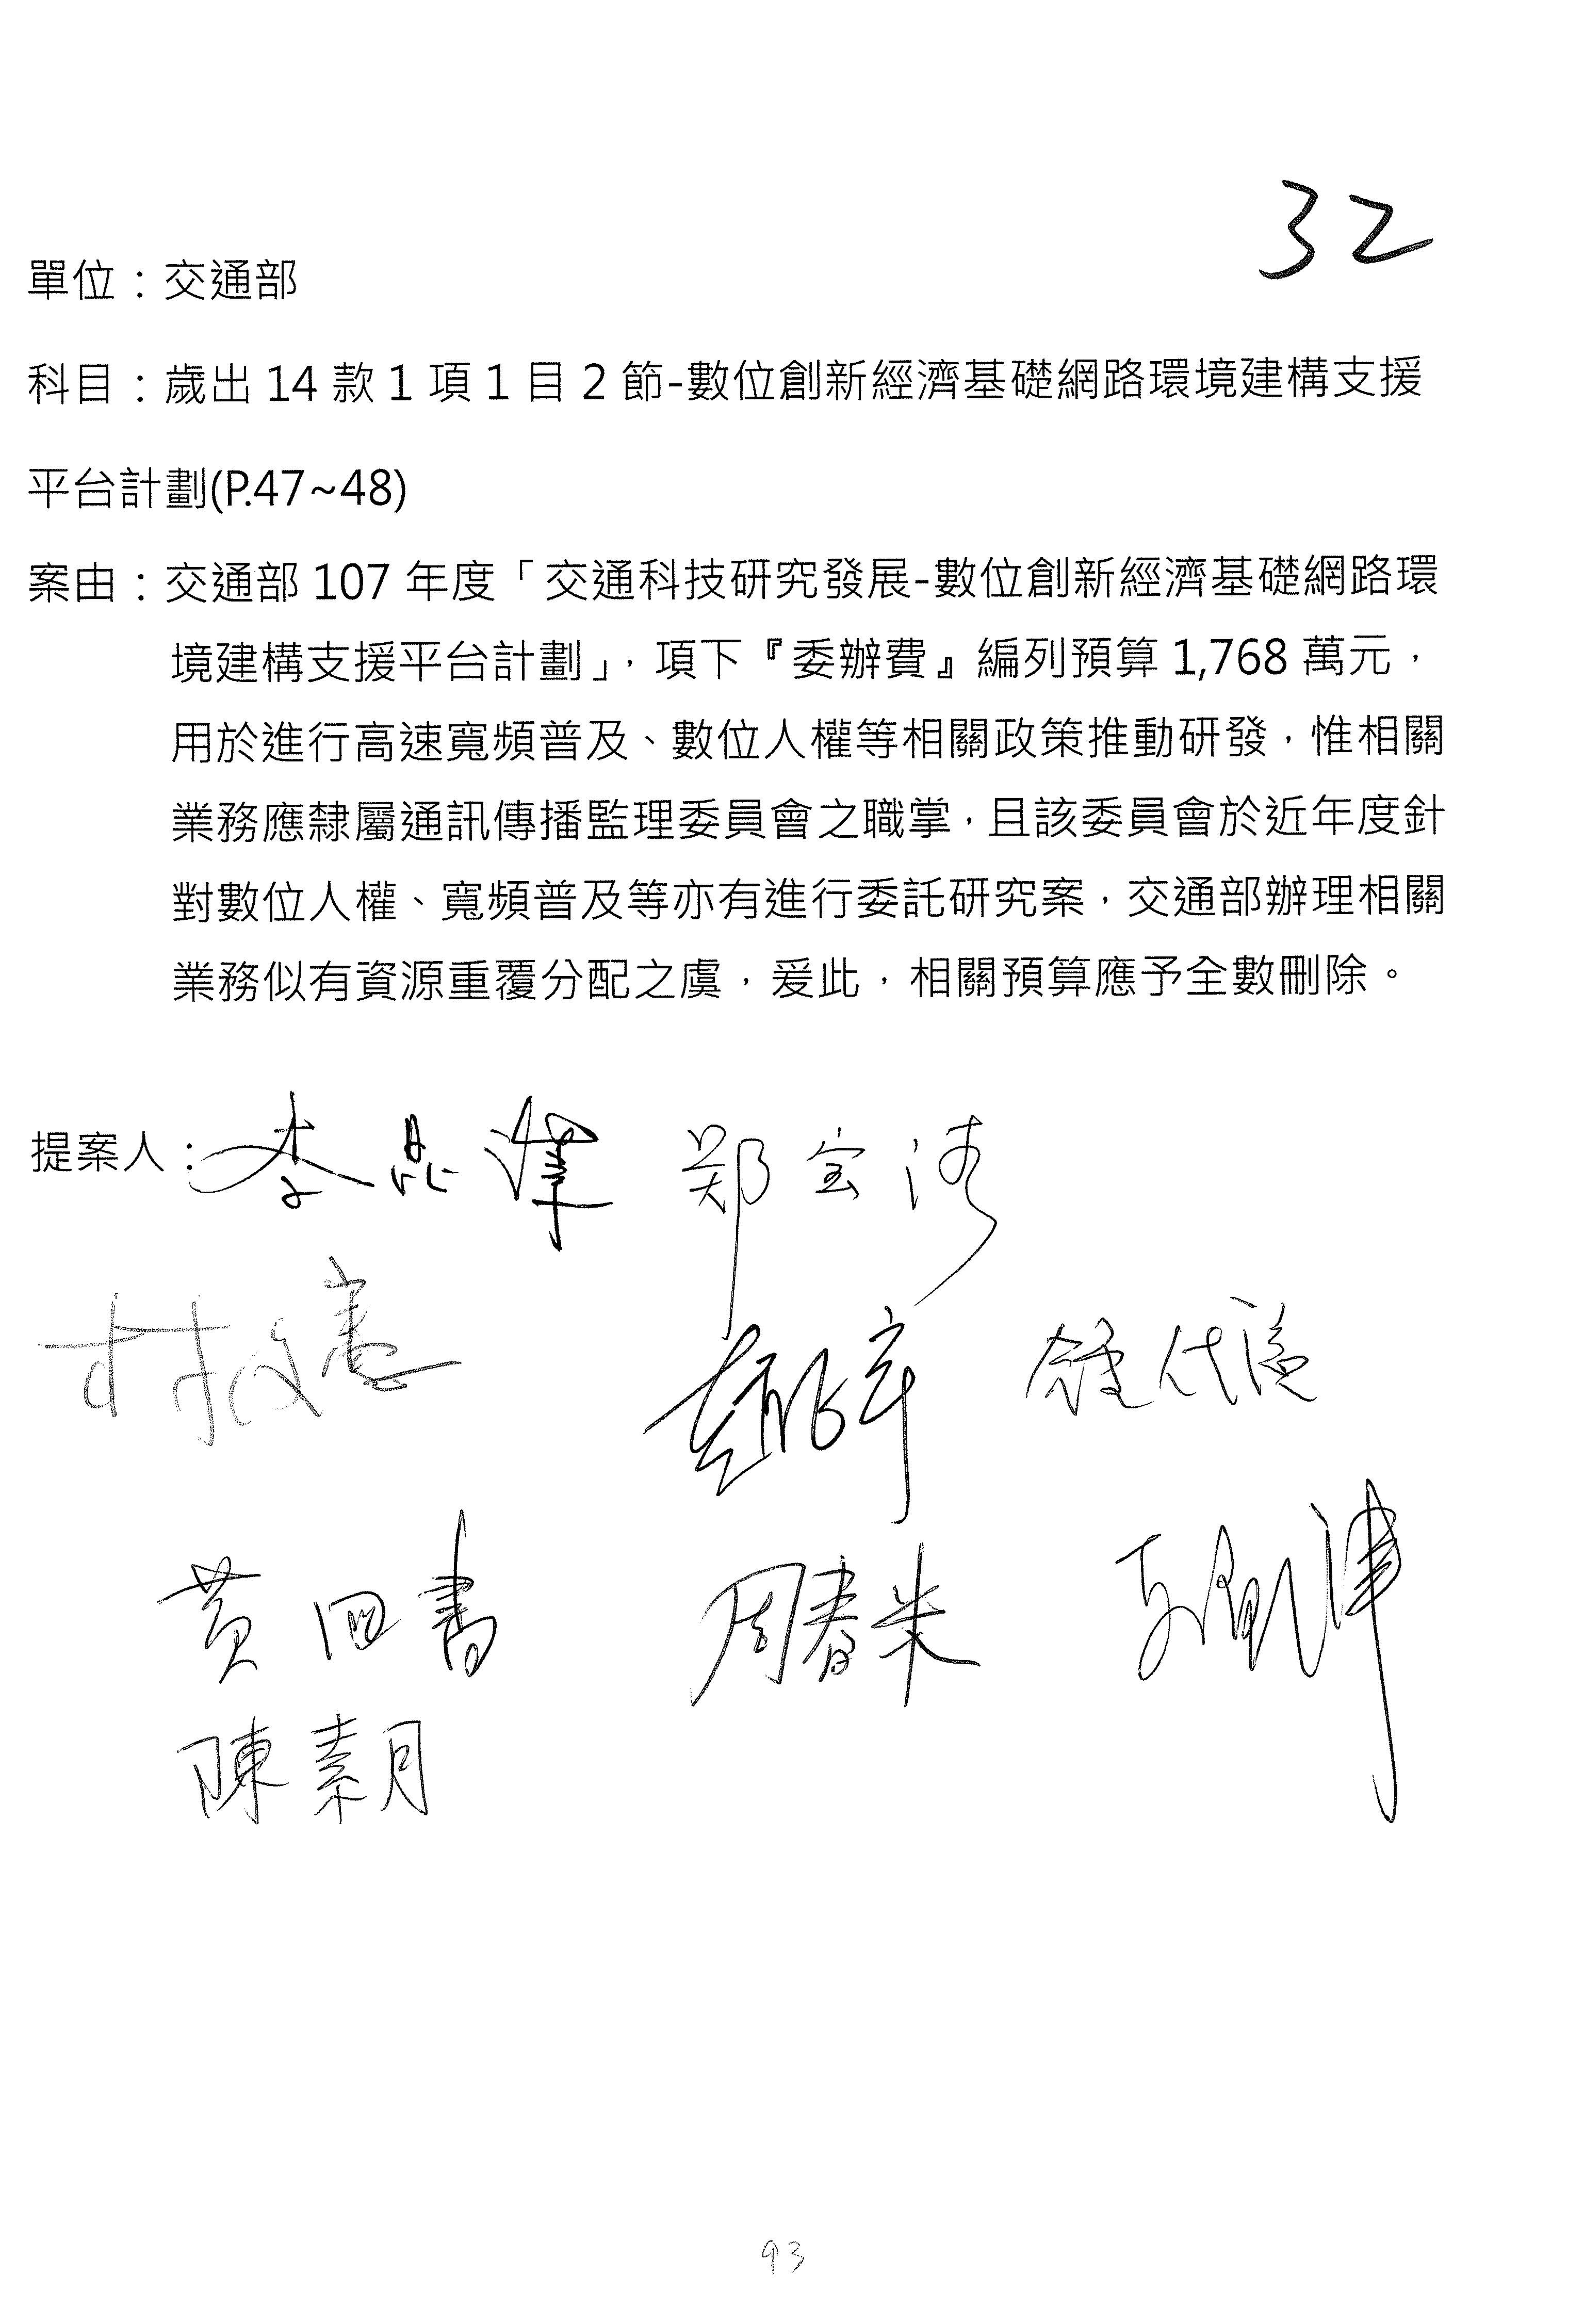 32
單位：交通部
科目：歲出 14 款 1 項 1 目 2 節-數位創新經濟基礎網路環境建構支援
平台計劃(P.47~48)
案由：交通部 107 年度「交通科技研究發展-數位創新經濟基礎網路環
境建構支援平台計劃」，項下『委辦費』編列預算 1,768 萬元，
用於進行高速寬頻普及、數位人權等相關政策推動研發，惟相關
業務應隸屬通訊傳播監理委員會之職掌，且該委員會於近年度針
對數位人權、寬頻普及等亦有進行委託研究案，交通部辦理相關
業務似有資源重覆分配之虞，爰此，相關預算應予全數刪除。
提案人：李昆澤 鄭宝清
林俊憲
黃國書 周春米
陳素月
93